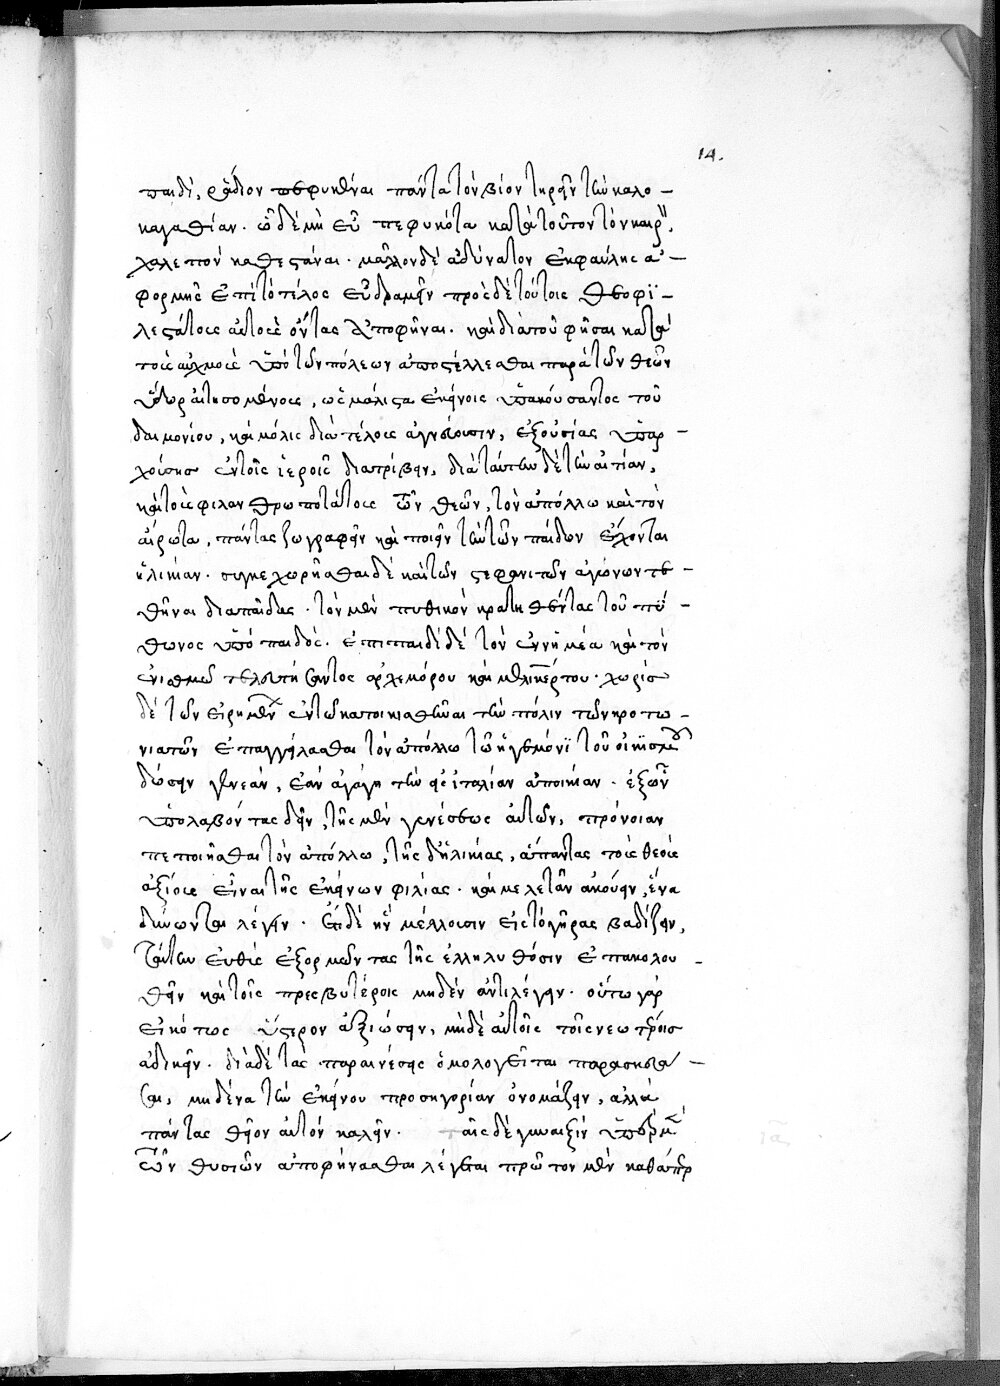 14.
παιδὶ, ῥάδιον πεφυκέναι πάντα τὸν βίον τηρεῖν τὴν καλο-
καγαθίαν. ὧ δὲ μὴ εὖ πεφυκότα κατὰ τοῦτον τὸν καιρὸν,
χαλεπὸν καθεστάναι. μᾶλλον δὲ ἀδύνατον ἐκ φαύλης ἀ-
φορμῆς ἐπὶ τὸ τέλος εὖ δραμεῖν πρὸς δὲ τούτοις θεοφι-
λεστάτους αὐτοὺς ὄντας ἀποφῆναι. καὶ διὰ τοῦ φῆσαι κατὰ
τοὺς αὐχμοὺς ὑπὸ τῶν πόλεων ἀποστέλλεσθαι παρὰ τῶν θεῶν
ὕδωρ αἰτησομένους, ὡς μάλιστα ἐκείνοις ὑπακούσαντος τοῦ
δαιμονίου, καὶ μόλις διὰ τέλους ἁγνεύουσιν, ἐξουσίας ὑπαρ-
χούσης ἐν τοῖς ἱεροῖς διατρίβειν, διὰ ταύτην δὲ τὴν αἰτίαν,
καὶ τοὺς φιλανθρωποτάτους τῶν θεῶν, τὸν ἀπόλλω καὶ τὸν
ἔρωτα, πάντας ζωγραφεῖν καὶ ποιεῖν τὴν τῶν παίδων ἔχοντας
ἡλικίαν. συγκεχωρῆσθαι δὲ καὶ τῶν στεφανιτῶν ἀγώνων τε-
θῆναι διὰ παῖδας. τὸν μὲν πυθικὸν κρατηθέντας τοῦ πύ-
θωνος ὑπὸ παιδός. ἐπὶ παιδὶ δὲ τὸν ἐν νημέα καὶ τὸν
ἐν ἰσθμῶ τελευτήσαντος ἀρχεμόρου καὶ μελικέρτου. χωρὶς
δὲ τῶν εἰρημένων ἐν τῶ κατοικισθῆναι τὴν πόλιν τῶν κροτω-
νιατῶν ἐπαγγείλασθαι τὸν ἀπόλλω τῶ ἡγεμόνϊ τοῦ οἰκισμοῦ
δώσειν γενεάν, ἐὰν ἀγάγη τὴν εἰς ἰταλίαν ἀποικίαν. ἐξ ὧν
ὑπολαβόντας δεῖν, τῆς μὲν γενέσεως αὐτῶν, πρόνοιαν
πεποιῆσθαι τὸν ἀπόλλω, τῆς δ' ἡλικίας, ἅπαντας τοὺς θεοὺς
ἀξίους εἶναι τῆς ἐκείνων φιλίας. καὶ μελετᾶν ἀκούειν, ἵνα
δύνωνται λέγειν. ἔτι δὲ ἣν μέλλουσιν εἰς τὸ γῆρας βαδίζειν,
ταύτην εὐθὺς ἐξορμῶντας τῆς ἐλληλυθόσιν ἐπακολου-
θεῖν καὶ τοῖς πρεσβυτέροις μηδὲν ἀντιλέγειν. οὕτω γὰρ
εἰκότως ὕστερον ἀξιώσειν, μηδὲ αὐτοῖς τοὺς νεωτέρους
ἀδικεῖν. διὰ δὲ τὰς παραινέσεις ὁμολογεῖται παρασκευά-
σαι, μηδένα τὴν ἐκείνου προσηγορίαν ὀνομάζειν, ἀλλὰ
πάντας θεῖον αὐτὸν καλεῖν. ταῖς δὲ γυναιξὶν ὑπὲρ μὲν
τῶν θυσιῶν ἀποφήνασθαι λέγεται πρῶτον μὲν καθάπερ